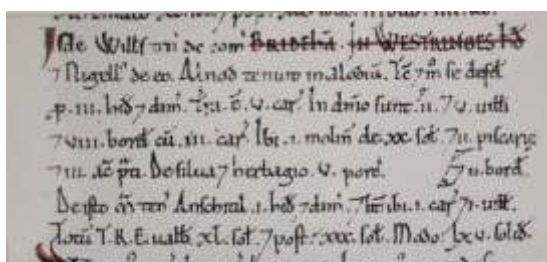 Isđe Wills ten' de com' BRIDEHĀ. IN WESTRINGES HĐ
7 Nigell' de eo. Alnod tenuit in alodiū. Tc̄ 7 m̊ se defd'
p. iii. hid' 7 dim'. Tr̄a. ē. v. car'. In dn̄io sunt. ii. 7 v. uitti
7 viii. bord' cū. iii. car'. Ibi. i. molin' de xx. sot'. 7 ii. piscarie
7 iii. ac̄ p̄ti. De silua 7 herbagio. v. porc'. 7 ii. bord'.
De isto m̄ ten' Anschitil. i. hid' 7 dim'. 7 ibi. i. car' 7 i. uitt'.
Totū T.R.E. ualb' xl. sot'. 7 post: xxx. sot'. Modo: lx v. solid'.